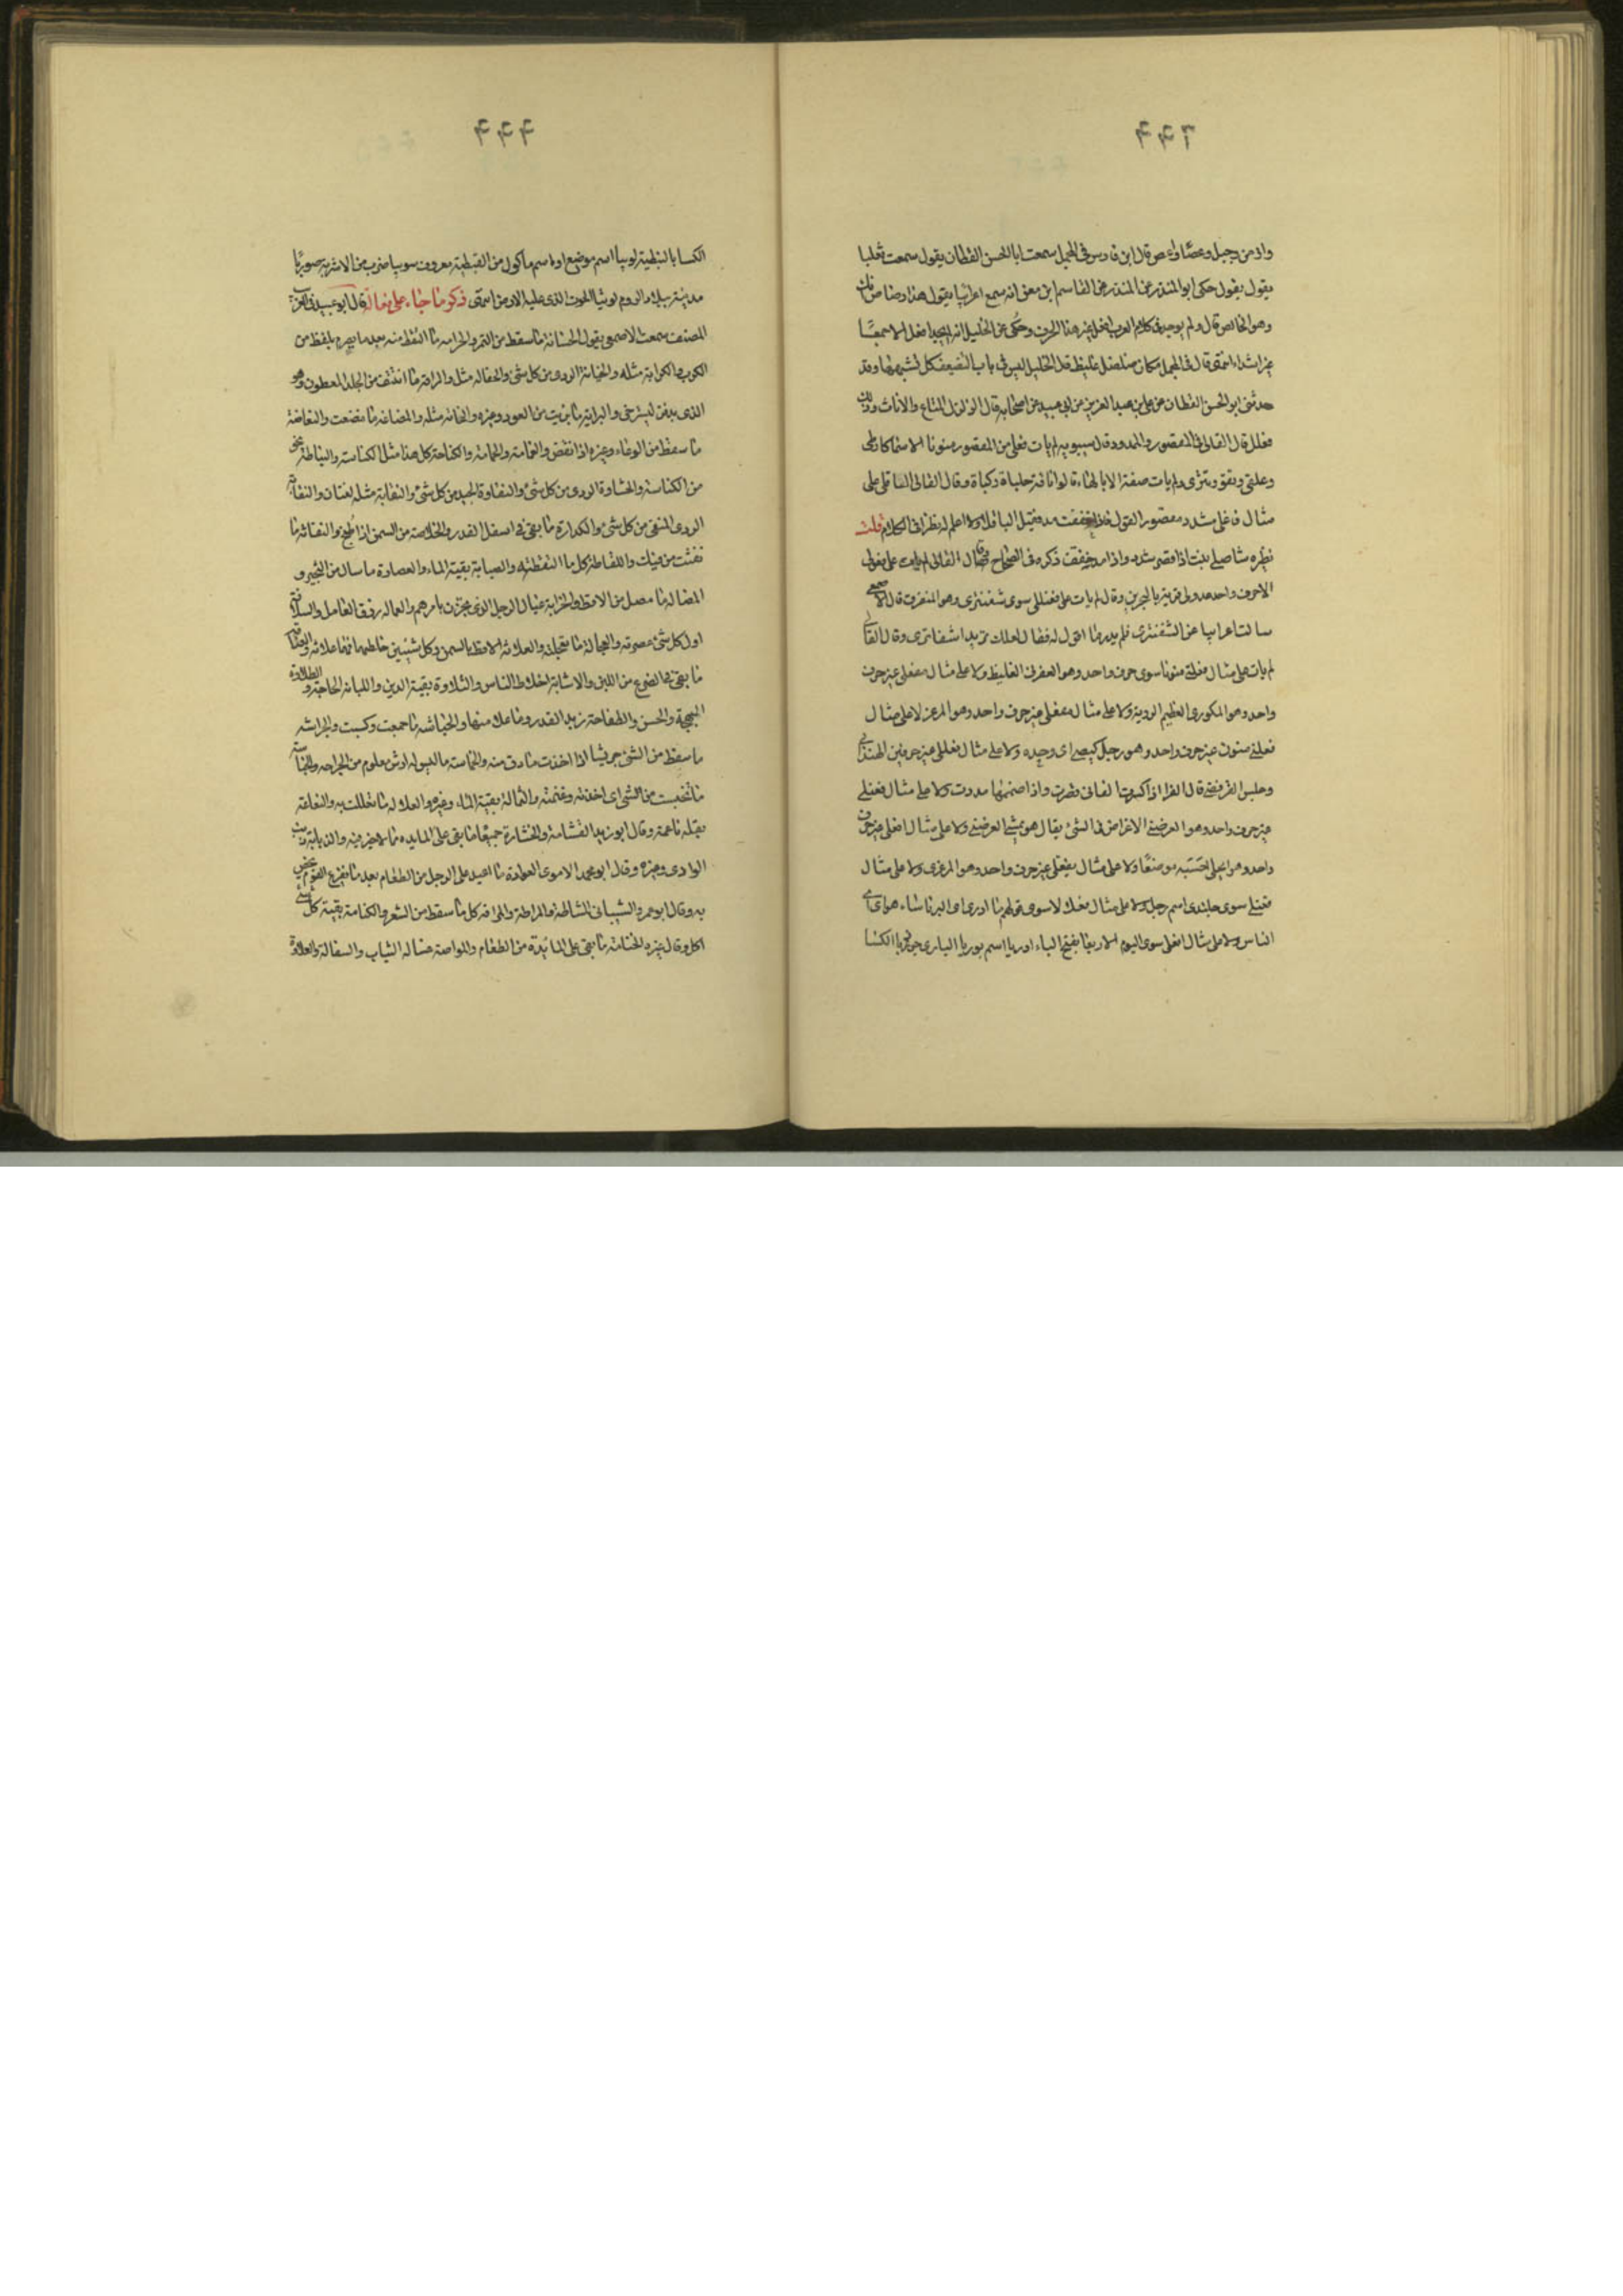 ٢٢١
واذ من وجبل وعصا واعص قال ابن فارس في المجمل سمعت ابا الحسن القطان يقول سمعت ثعلبا
يقول يقول حكى ابو المنذر عن المنذر عن القاسم ابن معن انه سمع اعرابيا يقول هذا رصاص
وهو الخالص قال ولم يوجد في كلام العرب غير هذا الحرف وحكي عن الخليل انه لم يجد افعل الا جمعا
غير اشد انتهى قال في المجمل مكان غليظ قال الخليل ليس في باب التضعيف كل تشبهها وقد
حدثني ابو الحسن القطان عن علي بن عبد العزيز عن ابي عبيد عن اصحابه قال الزلزل المتاع والاثاث وذلك
فعلل قال القالي في المقصور والممدود قال سيبويه لم يات فعلى من المقصور منونا الا اسما كارطى
وعلقى وتقوى وتترى ولم يات صفة الا بالهاء قالوا ناقة حلباة ركباة وقال القالي الباقلى على
مثال فاعلى مشدد مقصور الفول فاذا خففت مد فقيل الباقلاء ولا اعلم له نظيرا في الكلام قلت
نظيره شاصلى نبت اذا قصر شدد واذا مد خفف ذكره في الصحاح وقال القالي لم يات على
الاحرف واحد قرية بالبحرين وقال لم يات على فعنللى سوى شفنترى وهو المتفرق قال الاصمعي
سالت اعرابيا عن الشفنترى فلم يدر ما اقول له فقال لعلك تريد اشفاترى وقال القالي
لم يات على مثال مفعلى منونا سوى حرف واحد وهو الغليظ ولا على مثال مفعلى غير حرف
واحد وهو المكورى العظيم الروثة ولا على مثال مفعلى غير حرف واحد وهو المرعزى لا على مثال
فعلى منون غير حرف واحد وهو رجل كيصى اي وحده ولا على مثال فعللى غير حرفين الهندبى
وجلس القرفصى قال الفرا اذا كسرت القاف قصرت واذا ضممتها مددت ولا على مثال فعنلى
غير حرف واحد وهو العرضنى الاعتراض في الشئ يقال هو يمشي العرضنى ولا على مثال افعلى غير حرف
واحد وهو ايجلى موضعا ولا على مثال مفعلى غير حرف واحد وهو المرعزى ولا على مثال
سوى جلندى اسم رجل ولا على مثال فعلالا سوى قولهم ما ادرى اي البرناساء هو اي اي
الناس ولا على مثال افعلى سوى اليوم الاربعا بفتح الباء اوريا اسم بوريا البارى الكسا
٢٢٢
الكسا بالنبطية لوبيا اسم موضع او اسم ماكول من القبطية معروف سوبيا ضرب من الاشربة صوريا
مدينة ببلاد الروم لوثيا الحوت الذي عليه الارض انتهى ذكر ما جاء على فعالة قال ابو عبيد في الغريب
المصنف سمعت الاصمعي يقول الحسافة ما سقط من التمر والجرامة ما التقط منه بعد ما يصرم يلقط من
الكرب والكرابة مثله والخثارة الردي من كل شئ والحفالة مثل والمراقة ما انتتف من الجلد المعطون وهو
الذي يدفن ليسترخي والبراية ما بريت من العود وغيره والنحاتة مثله والمضاغة ما مضغت والنفاضة
ما سقط من الوعاء وغيره اذا نفض والقمامة والخمامة والكناحة كل هذا مثل الكناسة والسباطة نحو
من الكناسة والحثاوة الردي من كل شئ والنقاوة الجيد من كل شئ والنقاية مثله لغتان والنفاية
الردي المنفي من كل شئ والكدارة ما بقي في اسفل القدر والخلاصة من السمن اذا طبخ والنفاثة ما
نفثت من فيك واللقاطة كل ما التقطته والصبابة بقية الماء والعصارة ما سال من الثجير و
المصالة ما مصل من الاقط والحزانة عيال الرجل الذي يتحزن بامرهم والعمالة رزق العامل والسلافة
اول كل شئ عصرته والعجالة ما تعجلته والعلاثة الاقط بالسمن وكل شيئين خلطتهما فهما علاثة والعفافة
ما بقي في الضرع من اللبن والاشابة اخلاط الناس والتلاوة بقية الدين واللبانة الحاجة والطلاوة
البهجة والحسن والطفاحة زبد القدر وما علا منها والحباشة ما جمعت وكسبت والجراشة
ما سقط من الشئ جريشا اذا اخذت ما دق منه والخماسة ما ليس له ارش معلوم من الجراحة والخباسة
ما تخبست من الشئ اي اخذته وغنمته والثمالة بقية الماء وغيره والعلالة ما تعللت به واللعاعة
بقلة ناعمة وقال ابو زيد القشامة والخشارة جميعا ما بقي على المايدة مما لا خير فيه والذنابة ذنب
الوادي وغيره وقال ابو محمد الاموي العوادة ما اعيد على الرجل من الطعام بعد ما يفرغ القوم يخص
به وقال ابو عمرو الشيباني المشاطة والمراطة والمراقة كل ما سقط من الشعر والكدامة بقية كل شئ
اكل وقال غيره الختامة ما بقي على المائدة من الطعام والمواصة غسالة الثياب والسقالة والعلاوة